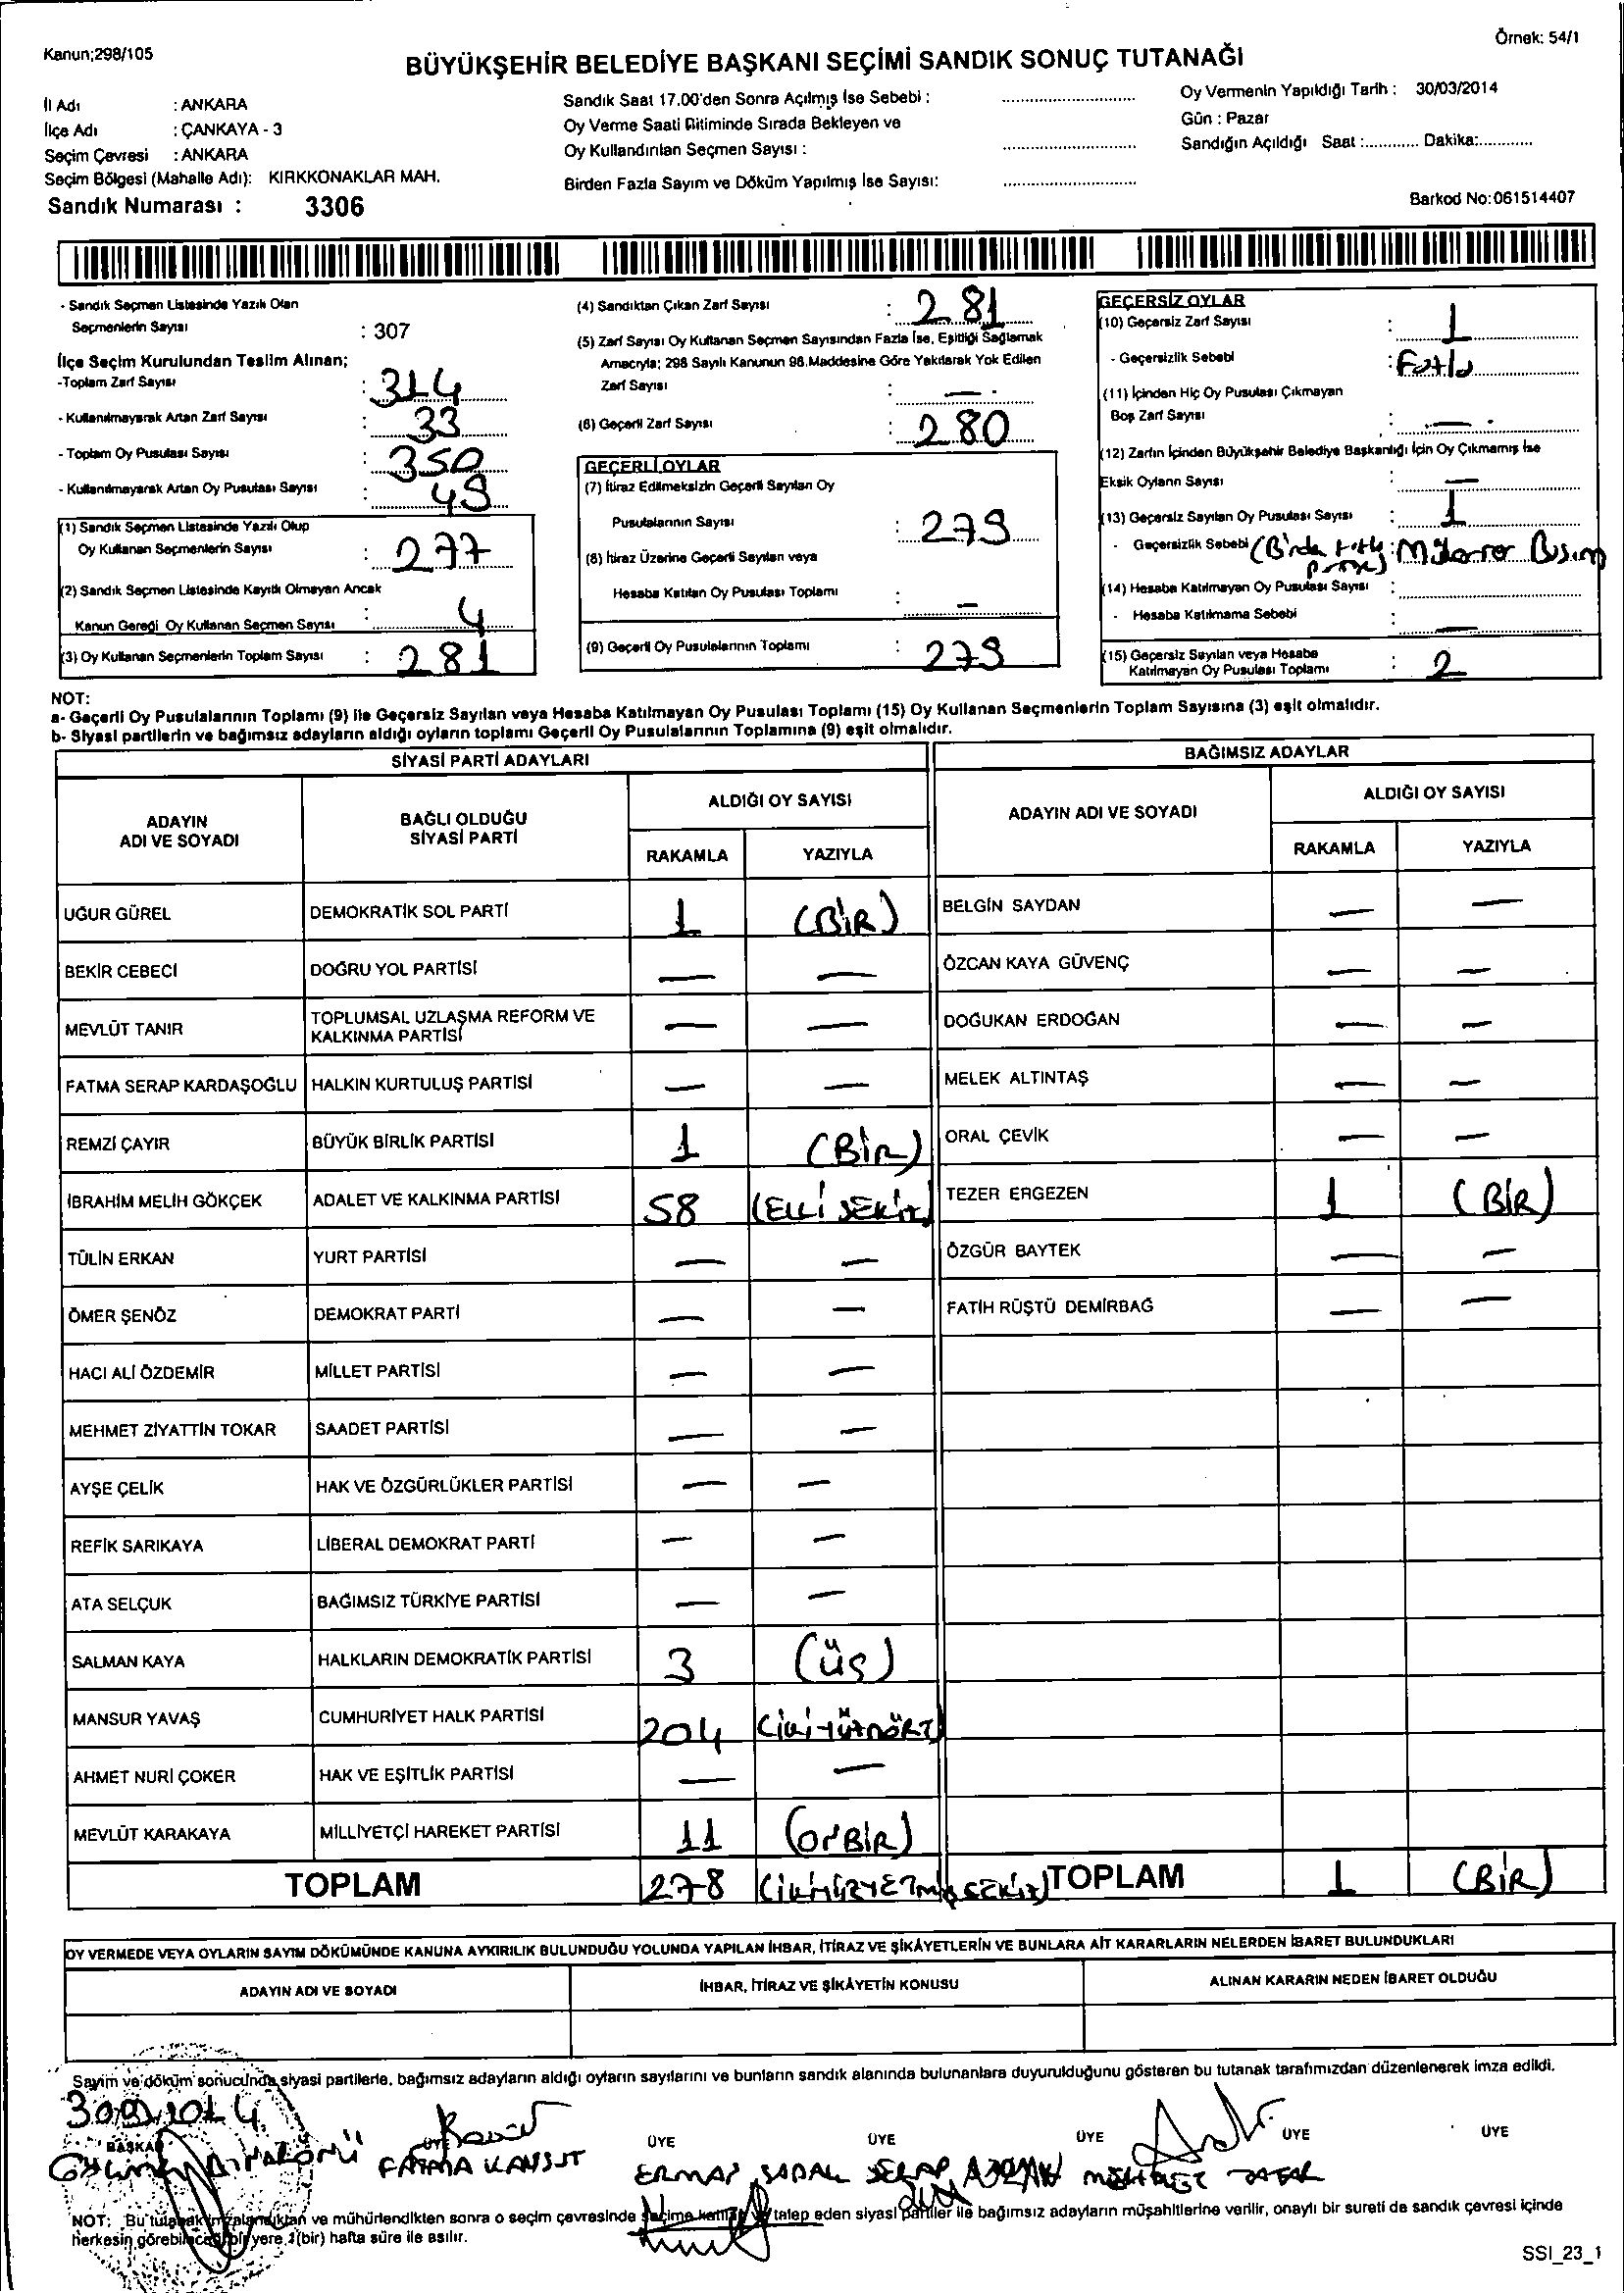 Kanun;298/105
Örnek: 54/1
BÜYÜKŞEHİR BELEDİYE BAŞKANI SEÇİMİ SANDIK SONUÇ TUTANAĞI
İl Adı : ANKARA
İlçe Adı : ÇANKAYA - 3
Seçim Çevresi : ANKARA
Seçim Bölgesi (Mahalle Adı): KIRKKONAKLAR MAH.
Sandık Numarası : 3306
Sandık Saat 17.00'den Sonra Açılmış İse Sebebi :
Oy Verme Saati Bitiminde Sırada Bekleyen ve
Oy Kullandırılan Seçmen Sayısı :
Birden Fazla Sayım ve Döküm Yapılmış İse Sayısı:
Oy Vermenin Yapıldığı Tarih : 30/03/2014
Gün : Pazar
Sandığın Açıldığı Saat :............ Dakika:............
Barkod No:061514407
- Sandık Seçmen Listesinde Yazılı Olan
Seçmenlerin Sayısı : 307
İlçe Seçim Kurulundan Teslim Alınan;
-Toplam Zarf Sayısı : 314
- Kullanılmayarak Artan Zarf Sayısı : 33
- Toplam Oy Pusulası Sayısı : 350
- Kullanılmayarak Artan Oy Pusulası Sayısı : 49
(1) Sandık Seçmen Listesinde Yazılı Olup
Oy Kullanan Seçmenlerin Sayısı : 277
(2) Sandık Seçmen Listesinde Kayıtlı Olmayan Ancak
Kanun Gereği Oy Kullanan Seçmen Sayısı : 4
(3) Oy Kullanan Seçmenlerin Toplam Sayısı : 281
(4) Sandıktan Çıkan Zarf Sayısı : 281
(5) Zarf Sayısı Oy Kullanan Seçmen Sayısından Fazla İse, Eşitliği Sağlamak
Amacıyla; 298 Sayılı Kanunun 98.Maddesine Göre Yakılarak Yok Edilen
Zarf Sayısı : —
(6) Geçerli Zarf Sayısı : 280
GEÇERLİ OYLAR
(7) İtiraz Edilmeksizin Geçerli Sayılan Oy
Pusulalarının Sayısı : 279
(8) İtiraz Üzerine Geçerli Sayılan veya
Hesaba Katılan Oy Pusulası Toplamı : —
(9) Geçerli Oy Pusulalarının Toplamı : 279
GEÇERSİZ OYLAR
(10) Geçersiz Zarf Sayısı : 1
- Geçersizlik Sebebi : Fazla
(11) İçinden Hiç Oy Pusulası Çıkmayan
Boş Zarf Sayısı : —
(12) Zarfın İçinden Büyükşehir Belediye Başkanlığı İçin Oy Çıkmamış İse
Eksik Oyların Sayısı : —
(13) Geçersiz Sayılan Oy Pusulası Sayısı : 1
- Geçersizlik Sebebi
(14) Hesaba Katılmayan Oy Pusulası Sayısı :
- Hesaba Katılmama Sebebi : —
(15) Geçersiz Sayılan veya Hesaba
Katılmayan Oy Pusulası Toplamı : 2
NOT:
a- Geçerli Oy Pusulalarının Toplamı (9) ile Geçersiz Sayılan veya Hesaba Katılmayan Oy Pusulası Toplamı (15) Oy Kullanan Seçmenlerin Toplam Sayısına (3) eşit olmalıdır.
b- Siyasi partilerin ve bağımsız adayların aldığı oyların toplamı Geçerli Oy Pusulalarının Toplamına (9) eşit olmalıdır.
SİYASİ PARTİ ADAYLARI
BAĞIMSIZ ADAYLAR
ADAYIN
ADI VE SOYADI
BAĞLI OLDUĞU
SİYASİ PARTİ
ALDIĞI OY SAYISI
RAKAMLA YAZIYLA
ADAYIN ADI VE SOYADI
ALDIĞI OY SAYISI
RAKAMLA YAZIYLA
UĞUR GÜREL DEMOKRATİK SOL PARTİ 1 (BİR) BELGİN SAYDAN — —
BEKİR CEBECİ DOĞRU YOL PARTİSİ — — ÖZCAN KAYA GÜVENÇ — —
MEVLÜT TANIR TOPLUMSAL UZLAŞMA REFORM VE
KALKINMA PARTİSİ — — DOĞUKAN ERDOĞAN — —
FATMA SERAP KARDAŞOĞLU HALKIN KURTULUŞ PARTİSİ — — MELEK ALTINTAŞ — —
REMZİ ÇAYIR BÜYÜK BİRLİK PARTİSİ 1 (BİR) ORAL ÇEVİK — —
İBRAHİM MELİH GÖKÇEK ADALET VE KALKINMA PARTİSİ 58 (ELLİ SEKİZ) TEZER ERGEZEN 1 (BİR)
TÜLİN ERKAN YURT PARTİSİ — — ÖZGÜR BAYTEK — —
ÖMER ŞENÖZ DEMOKRAT PARTİ — — FATİH RÜŞTÜ DEMİRBAĞ — —
HACI ALİ ÖZDEMİR MİLLET PARTİSİ — —
MEHMET ZİYATTİN TOKAR SAADET PARTİSİ — —
AYŞE ÇELİK HAK VE ÖZGÜRLÜKLER PARTİSİ — —
REFİK SARIKAYA LİBERAL DEMOKRAT PARTİ — —
ATA SELÇUK BAĞIMSIZ TÜRKİYE PARTİSİ — —
SALMAN KAYA HALKLARIN DEMOKRATİK PARTİSİ 3 (üç)
MANSUR YAVAŞ CUMHURİYET HALK PARTİSİ 204 (İKİYÜZDÖRT)
AHMET NURİ ÇOKER HAK VE EŞİTLİK PARTİSİ — —
MEVLÜT KARAKAYA MİLLİYETÇİ HAREKET PARTİSİ 11 (ONBİR)
TOPLAM 278 (İKİYÜZYETMİŞSEKİZ) TOPLAM 1 (BİR)
OY VERMEDE VEYA OYLARIN SAYIM DÖKÜMÜNDE KANUNA AYKIRILIK BULUNDUĞU YOLUNDA YAPILAN İHBAR, İTİRAZ VE ŞİKÂYETLERİN VE BUNLARA AİT KARARLARIN NELERDEN İBARET BULUNDUKLARI
ADAYIN ADI VE SOYADI İHBAR, İTİRAZ VE ŞİKÂYETİN KONUSU ALINAN KARARIN NEDEN İBARET OLDUĞU
Sayım ve döküm sonucunda siyasi partilerle, bağımsız adayların aldığı oyların sayılarını ve bunların sandık alanında bulunanlara duyurulduğunu gösteren bu tutanak tarafımızdan düzenlenerek imza edildi.
BAŞKAN ÜYE ÜYE ÜYE ÜYE ÜYE ÜYE
FATMA
NOT: Bu tutanak imzalandıktan ve mühürlendikten sonra o seçim çevresinde seçime katılan ve talep eden siyasi partiler ile bağımsız adayların müşahitlerine verilir, onaylı bir sureti de sandık çevresi içinde
herkesin görebileceği bir yere 1(bir) hafta süre ile asılır.
SSI_23_1